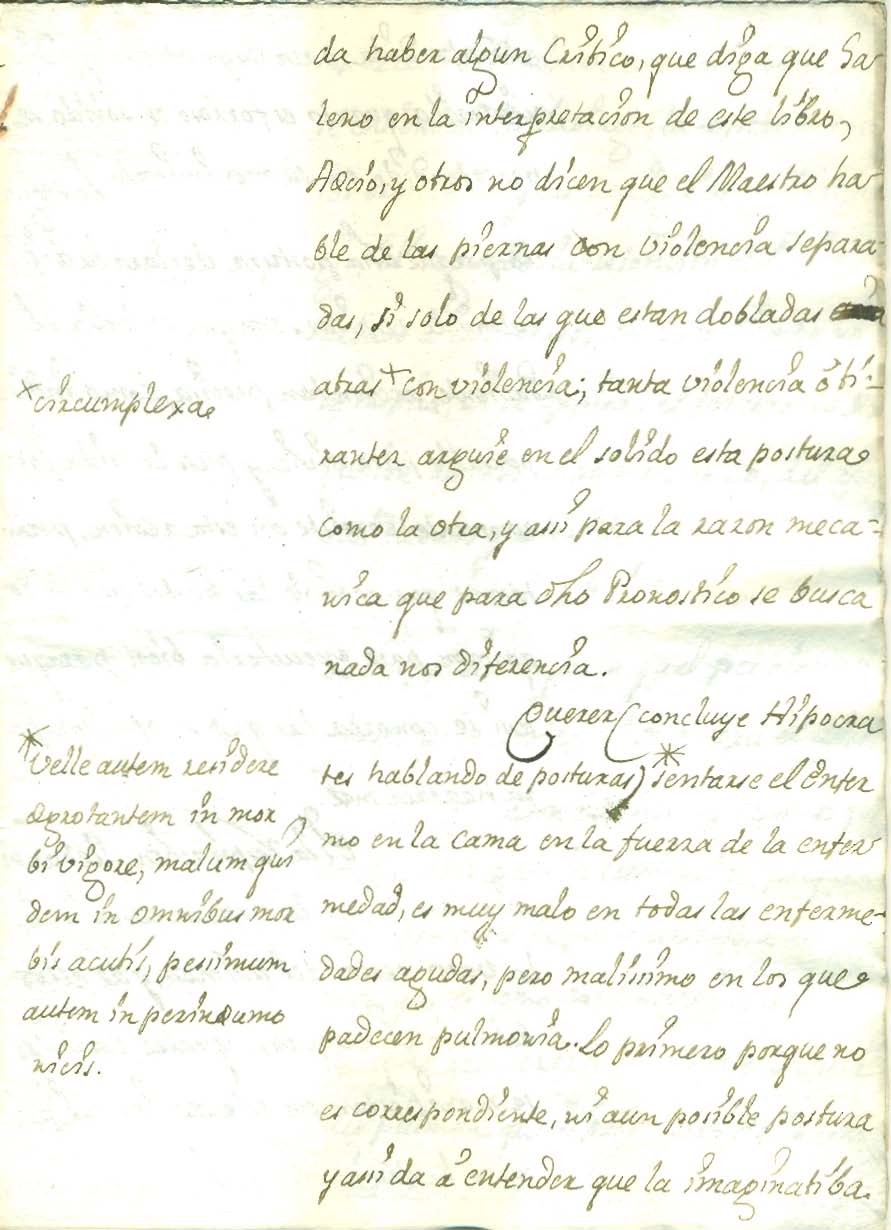 da haber algun Critico, que diga que Ga
leno en la interpretacion de este libro,
Aecio, y otros no dicen que el Maestro ha
ble de las piernas con violencia separa
das, si solo de las que estan dobladas
atras + con violencia; tanta violencia ó ti-
ranter arguie en el solido esta postura
como la otra, y assi para la razon meca=
nica que para dho Pronostico se busca
nada nos diferencia.
+ circumplexa.
Querer (concluye Hipocra
tes hablando de posturas) * sentarse el Enfer
mo en la cama en la fuerza de la enfer
medad, es muy malo en todas las enferme-
dades agudas, pero malissimo en los que
padecen pulmonia. Lo primero porque no
es correspondiente, ni aun posible postura
y assi da á entender que la imaginatiba
* Velle autem residere
ægrotantem in mor
bi vigore, malum qui
dem in omnibus mor
bis acutis, pessimum
autem in perinæumo
nicis.